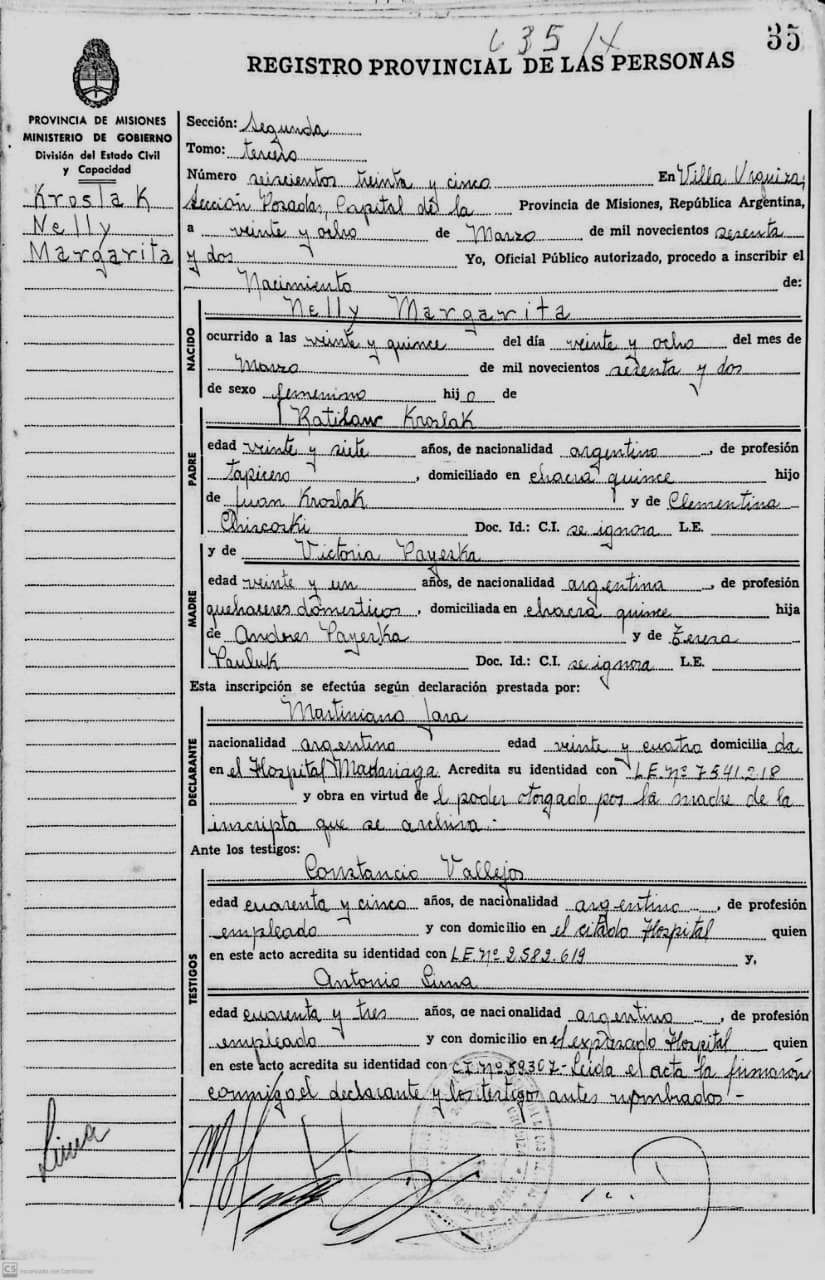 635/4
35
REGISTRO PROVINCIAL DE LAS PERSONAS
PROVINCIA DE MISIONES
MINISTERIO DE GOBIERNO
División del Estado Civil
y Capacidad
Kroslak
Nelly
Margarita
Sección: Segunda
Tomo: tercero
Número seiscientos treinta y cinco En Villa Urquiza,
Sección Posadas, Capital de la Provincia de Misiones, República Argentina,
a veinte y ocho de Marzo de mil novecientos sesenta
y dos Yo, Oficial Público autorizado, procedo a inscribir el
Nacimiento de:
NACIDO
Nelly Margarita
ocurrido a las veinte y quince del día veinte y ocho del mes de
Marzo de mil novecientos sesenta y dos
de sexo femenino hij o de
PADRE
Ratilaw Kroslak
edad veinte y siete años, de nacionalidad argentino, de profesión
tapicero, domiciliado en chacra quince hijo
de Juan Kroslak y de Clementina
Chiscoski Doc. Id.: C.I. se ignora L.E.
MADRE
y de Victoria Payeska
edad veinte y un años, de nacionalidad argentina, de profesión
quehaceres domesticos, domiciliada en chacra quince hija
de Andres Payeska y de Tereza
Pauluk Doc. Id.: C.I. se ignora L.E.
Esta inscripción se efectúa según declaración prestada por:
DECLARANTE
Martiniano Jara
nacionalidad argentino edad veinte y cuatro domicilia da
en el Hospital Madariaga Acredita su identidad con L.E. Nº 7.541.218
y obra en virtud de el poder otorgado por la madre de la
inscripta que se archiva.-
Ante los testigos:
TESTIGOS
Constancio Vallejos
edad cuarenta y cinco años, de nacionalidad argentino, de profesión
empleado y con domicilio en el citado Hospital quien
en este acto acredita su identidad con L.E. Nº 2.582.619 y,
Antonio Lima
edad cuarenta y tres años, de nacionalidad argentino, de profesión
empleado y con domicilio en el expresado Hospital quien
en este acto acredita su identidad con C.I. Nº 59307- Leida el acta la firmaron
conmigo el declarante y los testigos antes nombrados-
Lima
CS Escaneado con CamScanner